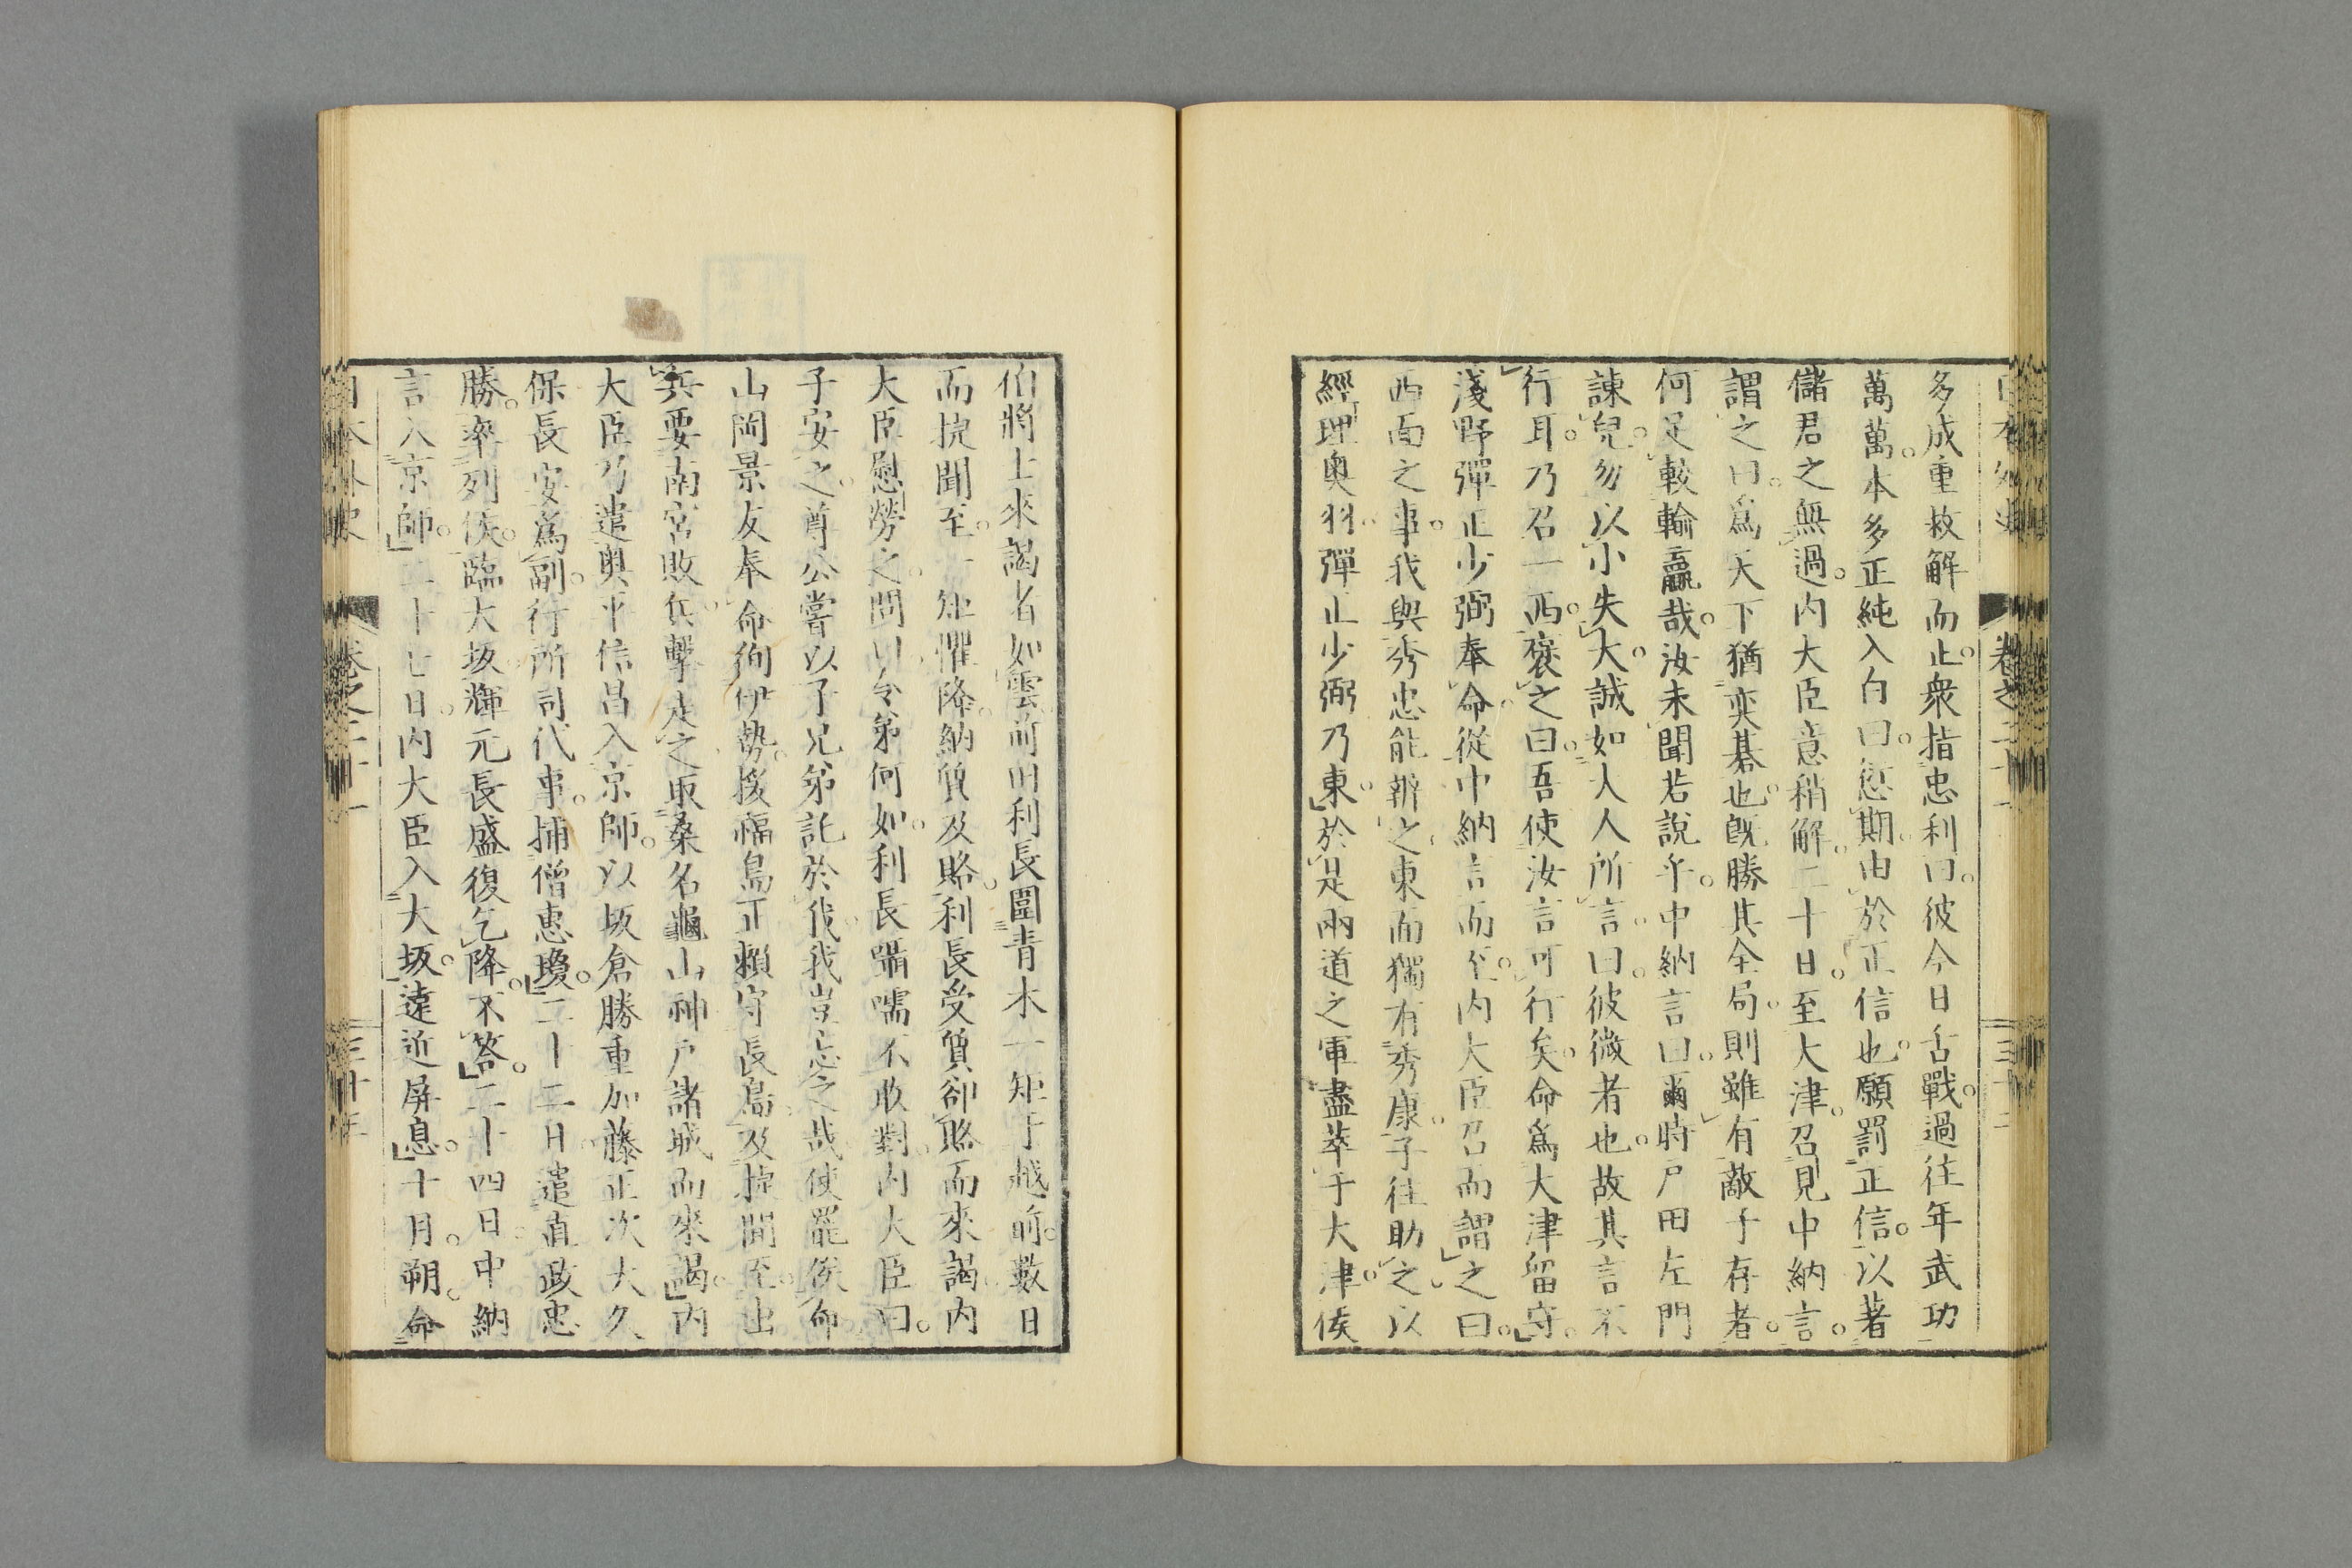 多成重救解而止。衆指忠利曰。彼今日舌戰。過往年武功
萬萬。本多正純入白曰。愆期。由於正信也。願罰正信。以著
儲君之無過。内大臣意稍解。二十日。至大津。召見中納言。
謂之曰。爲天下猶奕碁也。既勝其全局。則雖有敵子存者。
何足較輸贏哉。汝未聞若說乎。中納言曰。爾時戸田左門
諫兒。勿以小失大。誠如人人所言。曰。彼微者也。故其言不
行耳。乃召一西。襃之曰。吾使汝言可行矣。命爲大津留守。
淺野彈正少弼奉命。從中納言而至。内大臣召而謂之曰。
西面之事。我與秀忠能辨之。東面獨有秀康。子往助之。以
經理奧羽。彈正少弼乃東。於是兩道之軍盡萃于大津。侯
伯將士來謁者如雲。前田利長圍青木一矩于越前。數日
而捷聞至。一矩懼降。納質及賂。利長受質卻賂而來謁。内
大臣慰勞之。問曰。令弟何如。利長囁嚅不敢對。内大臣曰。
子安之。尊公嘗以子兄弟託於我。我豈忘之哉。使罷俟命。
山岡景友奉命徇伊勢。援福島正賴守長島。及捷聞至。出
兵要南宮敗兵。擊走之。取桑名龜山神戸諸城而來謁。内
大臣乃遣奧平信昌入京師。以坂倉勝重加藤正次大久
保長安爲副。行所司代事。捕僧惠瓊。二十二日。遣直政忠
勝。率列侯。臨大坂。輝元長盛復乞降。不答。二十四日。中納
言入京師。二十七日。内大臣入大坂。遠近屏息。十月。朔。命
日本外史 卷之二十一